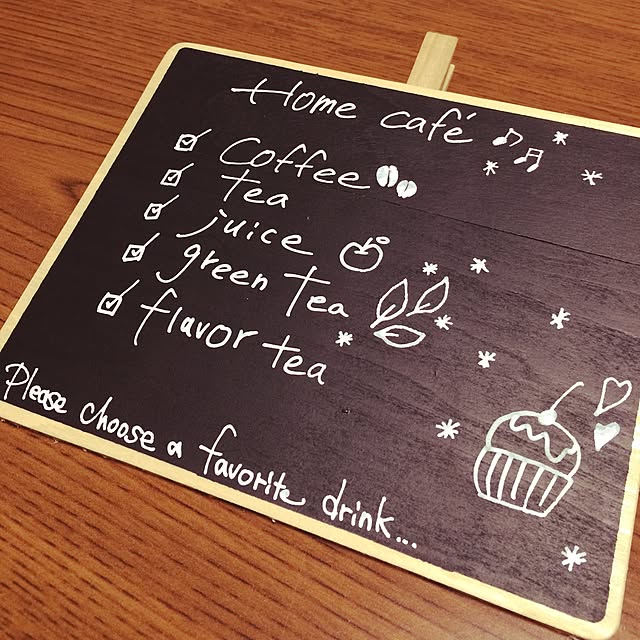 Home café
Coffee
tea
juice
green tea
flavor tea
Please choose a favorite drink...